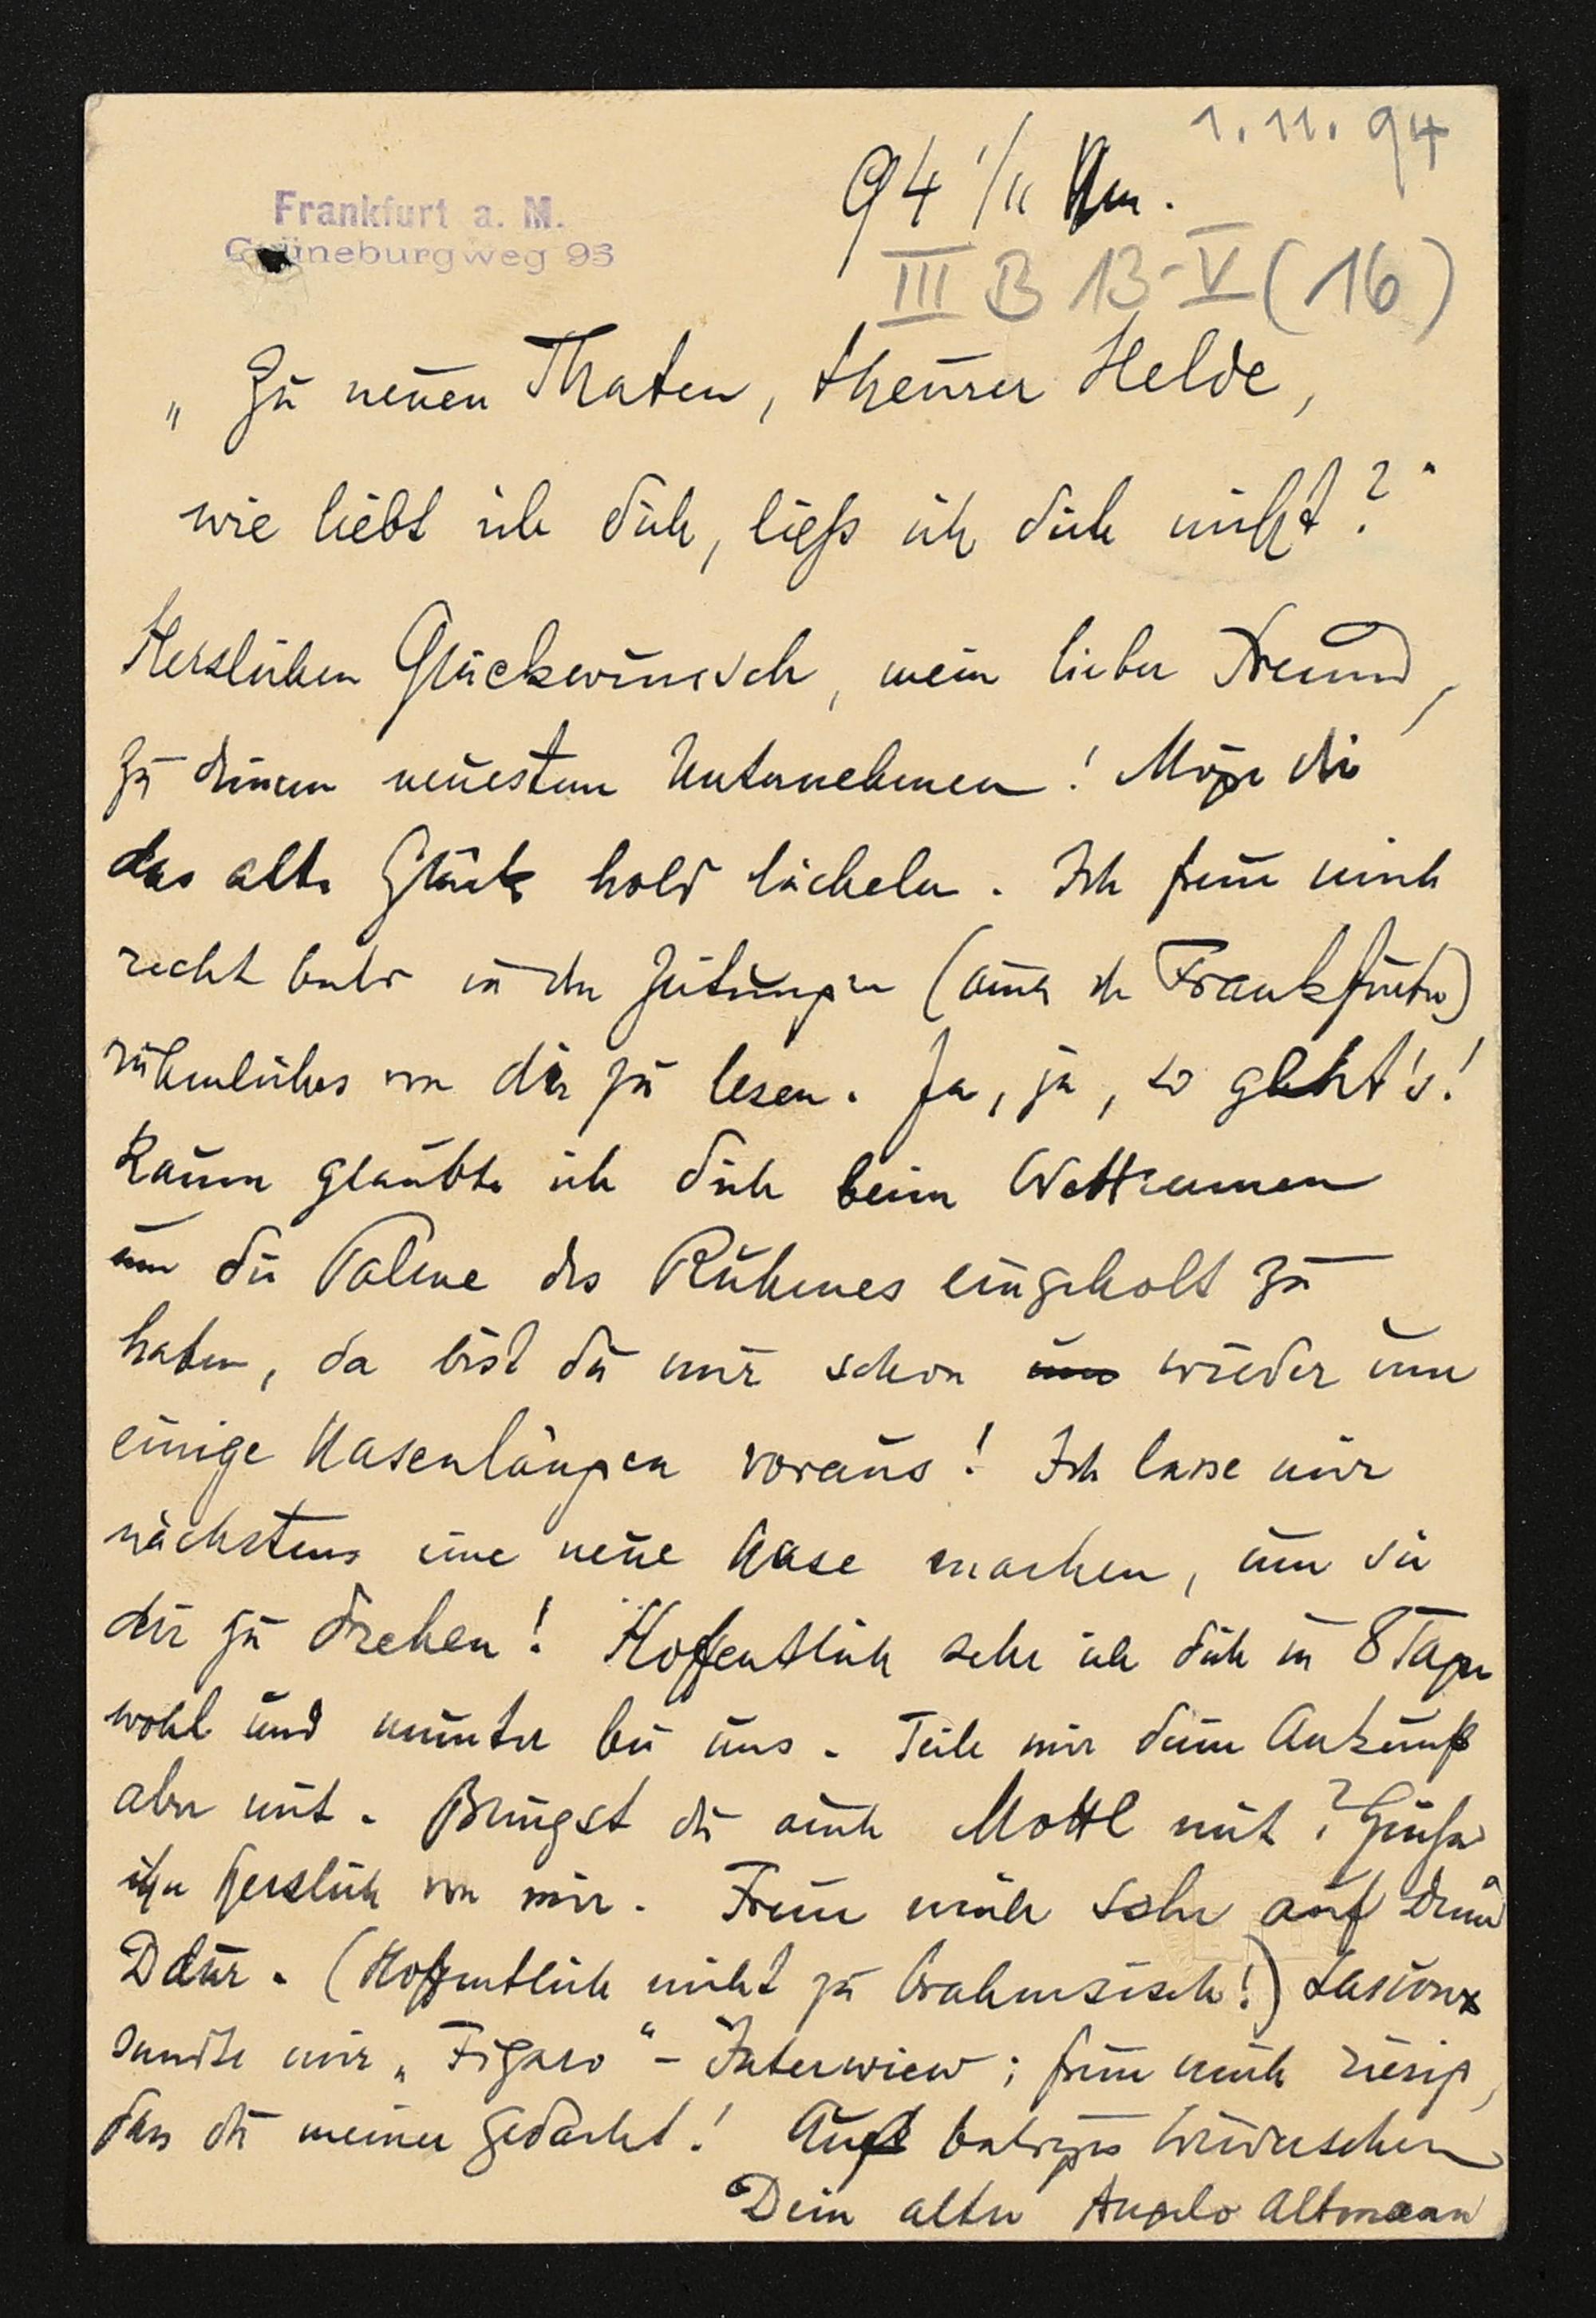 1. 11. 94
94 1/11 Nm.
Frankfurt a. M.
Grüneburgweg 95
III B 13-V (16)
„Zu neuen Thaten, theurer Helde,
wie liebt ich dich, ließ ich dich nicht?“
Herzlichen Glückwunsch, mein lieber Freund,
zu deinem neuesten Unternehmen! Möge dir
das alte Glück hold lächeln. Ich freue mich
recht bald in den Zeitungen (auch der Frankfurter)
rühmliches von dir zu lesen. Ja, ja, so geht's!
Kaum glaubte ich dich beim Wettrennen
um die Palme des Ruhmes eingeholt zu
haben, da bist du mir schon wieder um
einige Nasenlängen voraus! Ich lasse mir
nächstens eine neue Nase machen, um sie
dir zu drehen! Hoffentlich sehe ich dich in 8 Tagen
wohl und munter bei uns. Teile mir deine Ankunft
aber mit. Bringst du auch Mottl mit? Grüße
ihn herzlich von mir. Freue mich sehr auf deine
Ddur. (Hoffentlich nicht zu brahmsisch!) Lascoux
sandte mir „Figaro“-Interwiew; freue mich riesig,
dass du meiner gedacht! Auf baldiges Wiedersehen
Dein alter